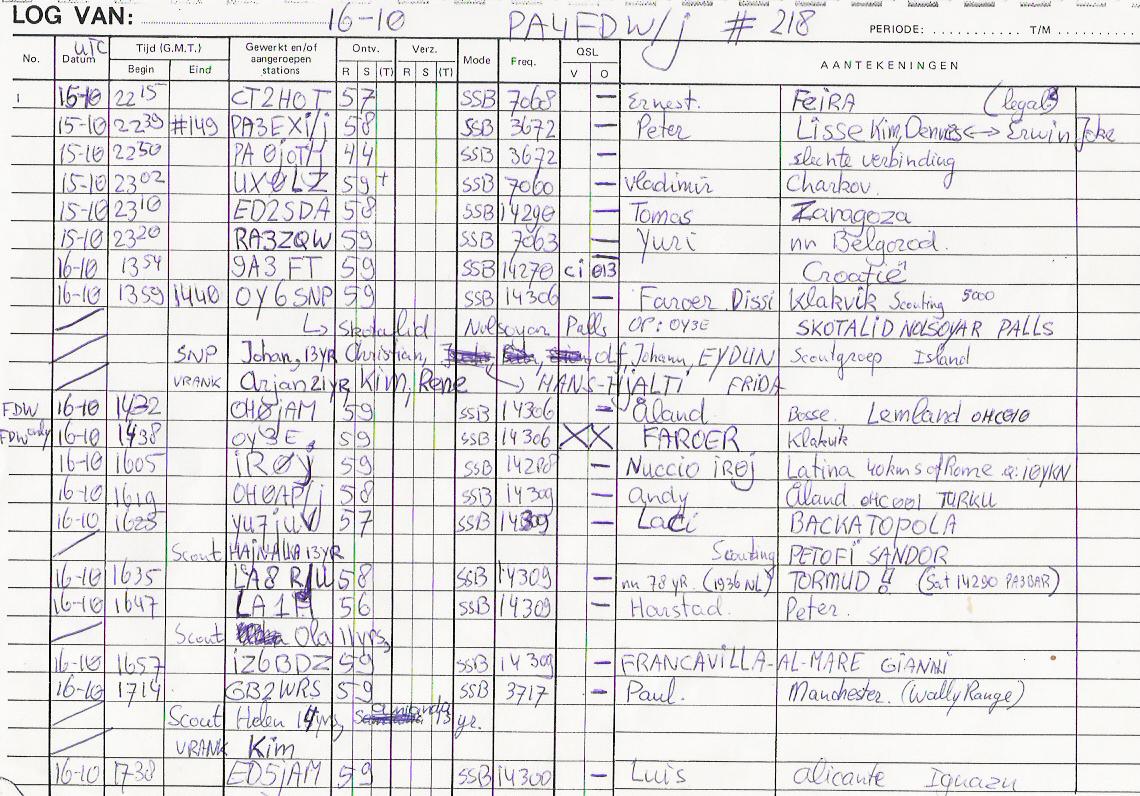 LOG VAN: 16-10 PA4FDW/j # 218 PERIODE: T/M
No. UTC Datum Tijd (G.M.T.) Begin Eind Gewerkt en/of aangeroepen stations Ontv. R S (T) Verz. R S (T) Mode Freq. QSL V O AANTEKENINGEN
1 15-10 2215 CT2HOT 57 SSB 7068 — Ernest. FEIRA (legals
15-10 2239 #149 PA3EXI/j 58 SSB 3672 — Peter Lisse Kim, Dennis <-> Erwin Joke
15-10 2250 PA0joTH 44 SSB 3672 — slechte verbinding
15-10 2302 UX0LZ 59+ SSB 7060 — Vladimir Charkov.
15-10 2310 ED2SDA 58 SSB 14290 — Tomas Zaragoza
15-10 2320 RA3ZQW 59 SSB 7063 — Yuri nn Belgorod.
16-10 1354 9A3FT 59 SSB 14270 ci 013 Croatië
16-10 1359 1440 OY6SNP 59 SSB 14306 — Faroer Dissi Klakvik Scouting 5000
↳ Skotalid Nolsoyar Palls OP: OY3E SKOTALID NOLSOYAR PALLS
SNP Johan, 13YR Christian, olf, Johann, EYDUN Scoutgroep Island
VRANK Arjan 21yr, Kim, Rene HANS-HJALTI FRIDA
FDW 16-10 1432 OH0jAM 59 SSB 14306 — Åland Bosse. Lemland OHC010
FDW only 16-10 1438 OY3E, 59 SSB 14306 XX FAROER Klakvik
16-10 1605 iR0j 59 SSB 14288 — Nuccio iR0j Latina 40kms of Rome q: i0YKN
16-10 1619 OH0AP/j 58 SSB 14309 — andy Åland OHC001 TURKU
16-10 1625 yu7juV 57 SSB 14309 — Laci BACKATOPOLA
Scout HAJNALKA 13YR Scouting PETOFI SANDOR
16-10 1635 LA8R/U 58 SSB 14309 — nn 78 YR. (1936 NL) TORMUD !! (Sat 14290 PA3BAR)
16-10 1647 LA1H 56 SSB 14309 — Harstad. Peter.
Scout Ola 11yrs,
16-10 1657 iZ6BDZ 59 SSB 14309 — FRANCAVILLA-AL-MARE GIANNI
16-10 1714 GB2WRS 59 SSB 3717 — Paul. Manchester. (Wally Range)
Scout Helen 14yrs, amanda 13 yr.
VRANK Kim
16-10 1738 ED5jAM 59 SSB 14300 — Luis alicante Iguazu